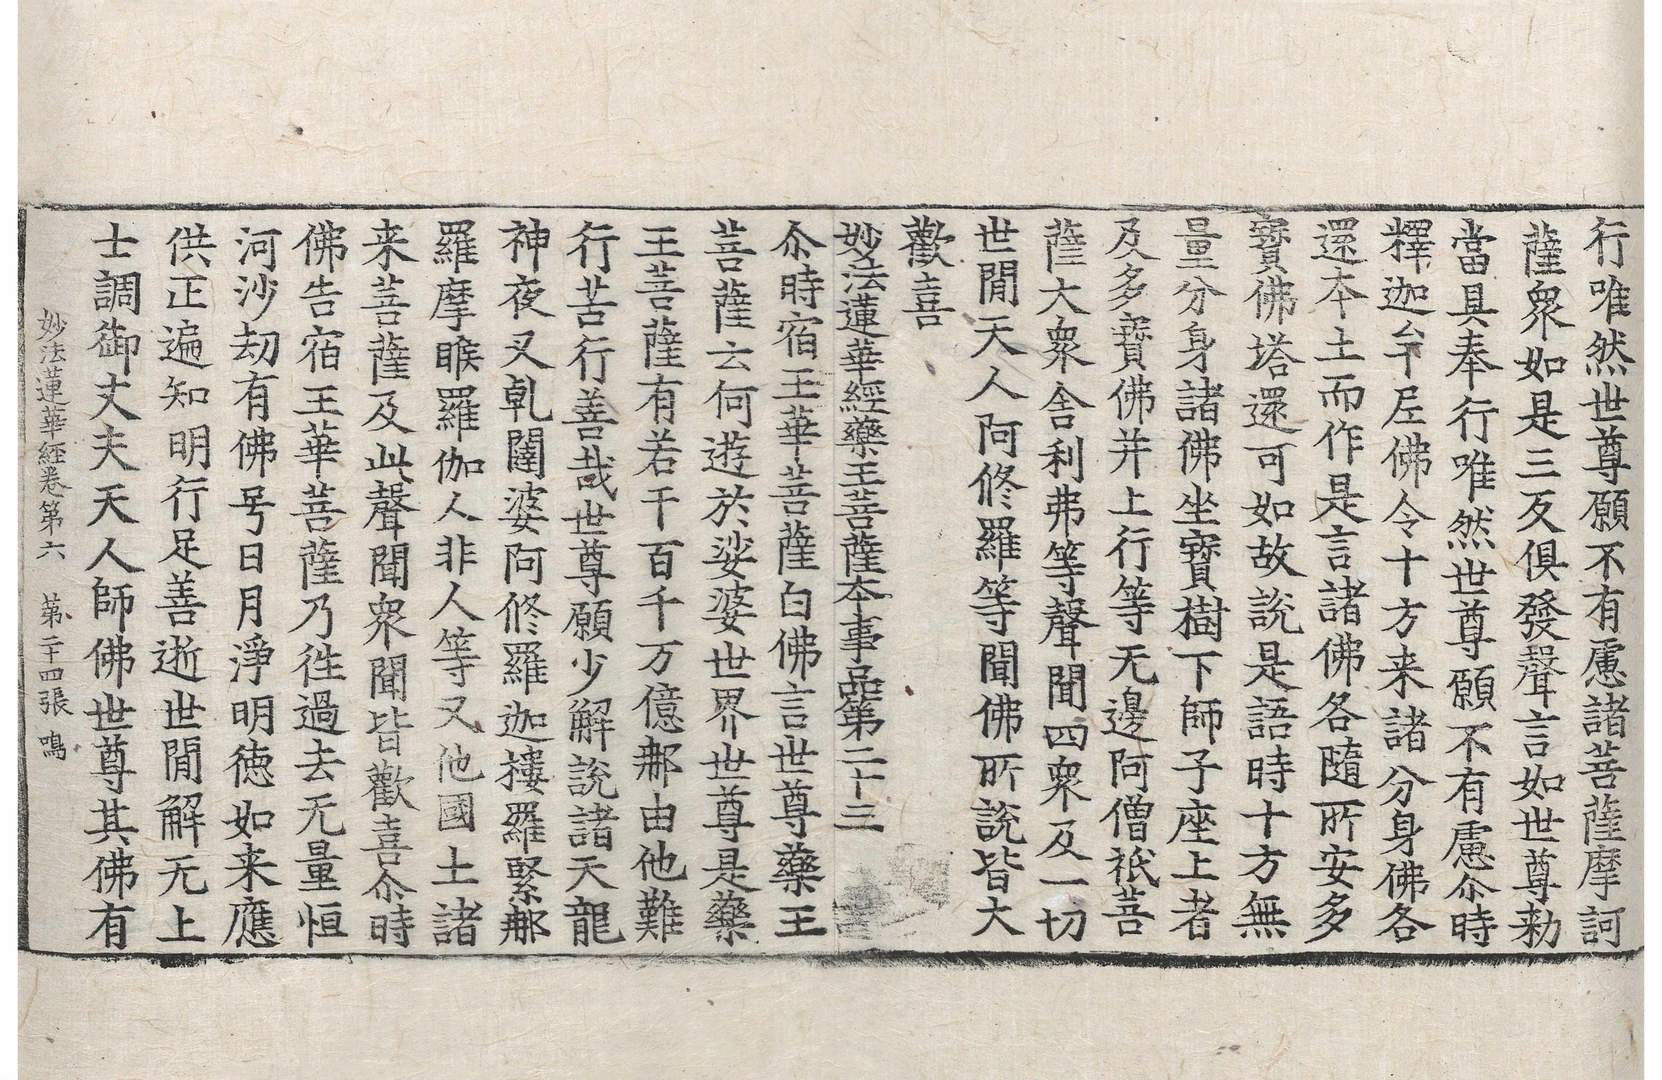 行唯然世尊願不有慮諸菩薩摩訶
薩衆如是三反俱發聲言如世尊勑
當具奉行唯然世尊願不有慮尒時
釋迦牟尼佛令十方来諸分身佛各
還本土而作是言諸佛各隨所安多
寳佛塔還可如故說是語時十方無
量分身諸佛坐寳樹下師子座上者
及多寳佛并上行等无邊阿僧祇菩
薩大衆舍利弗等聲聞四衆及一切
世閒天人阿修羅等聞佛所說皆大
歡喜
妙法蓮華經藥王菩薩本事品第二十三
尒時宿王華菩薩白佛言世尊藥王
菩薩云何遊於娑婆世界世尊是藥
王菩薩有若干百千万億那由他難
行苦行善哉世尊願少解說諸天龍
神夜叉乹闥婆阿修羅迦樓羅緊那
羅摩睺羅伽人非人等又他國土諸
来菩薩及此聲聞衆聞皆歡喜尒時
佛告宿王華菩薩乃徃過去无量恒
河沙劫有佛号日月淨明徳如来應
供正遍知明行足善逝世閒解无上
士調御丈夫天人師佛世尊其佛有
妙法蓮華経卷第六 第二十四張 鳴